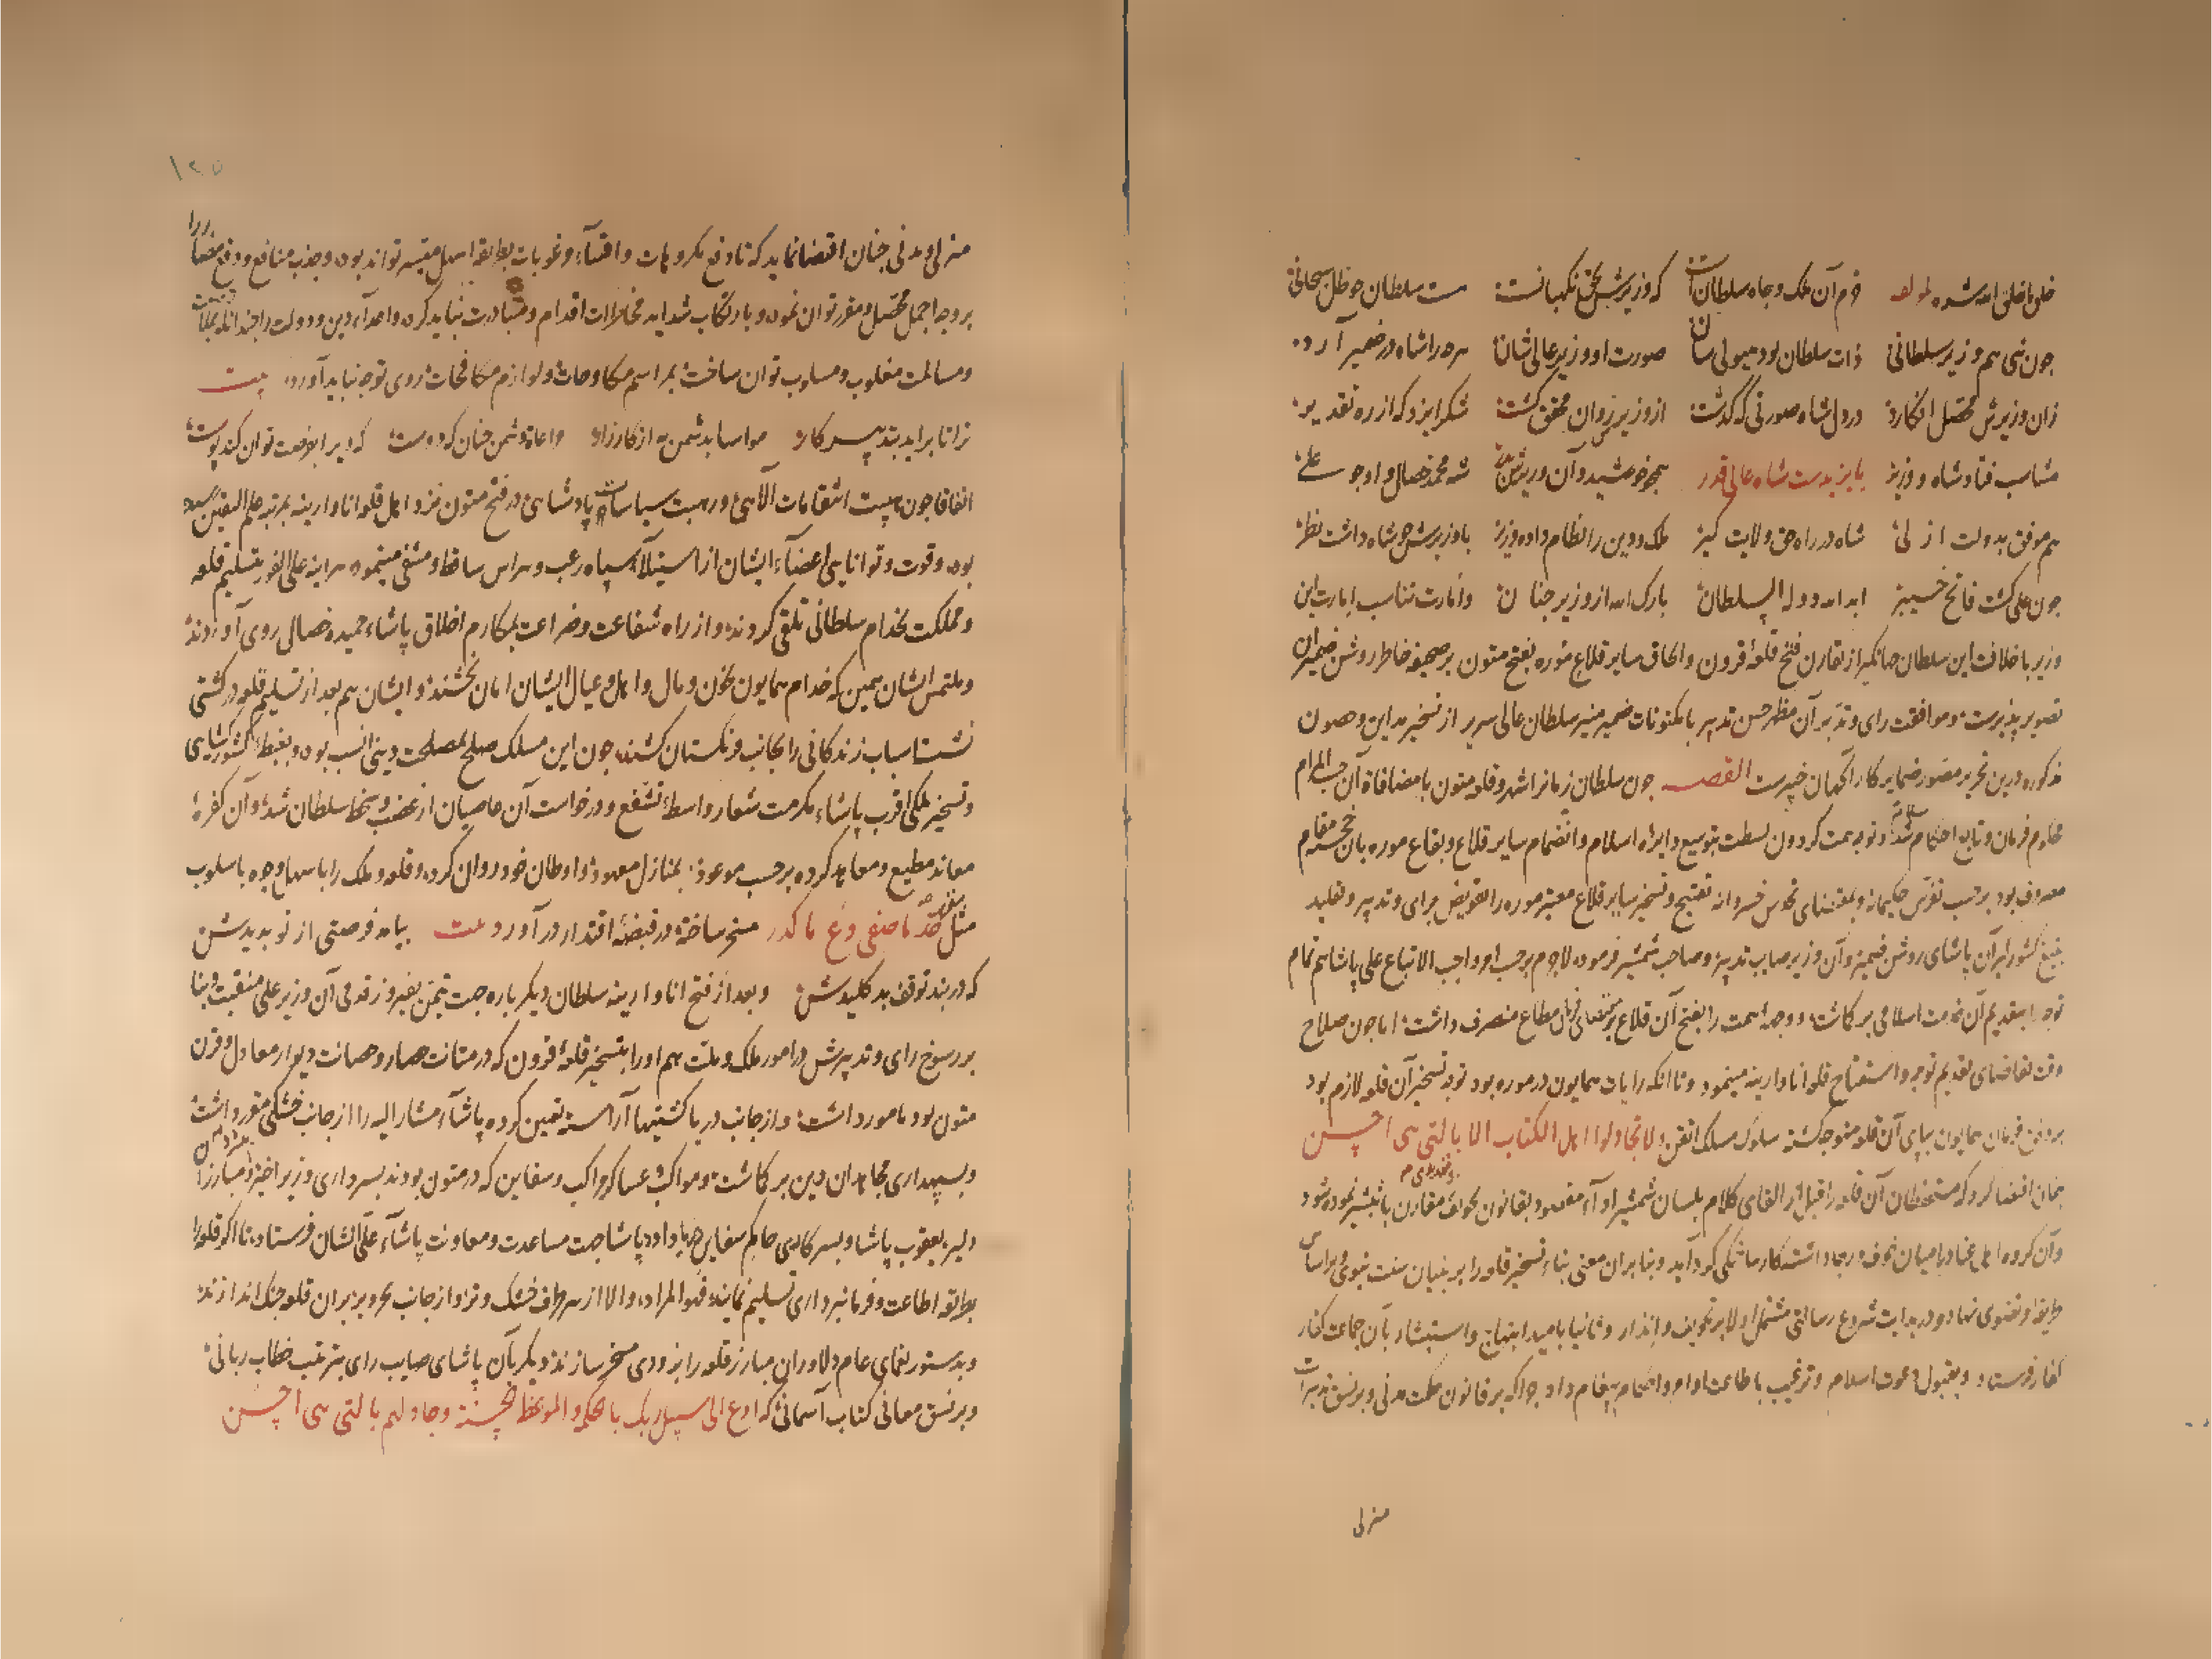 خرم آن ملک و جاه سلطان که وزیرش بحق نگهبانست هست سلطان چو ظل سبحانی
چون نبی هم وزیر سلطانی ذات سلطان بود هیولی سان صورت او وزیر عالی شان هرچه را شاه در ضمیر آرد
زان وزیرش محصل انگارد در دل شاه صورتی که گذشت از وزیر زمان محقق گشت شکر ایزد که از ره تقدیر
مناسب فتاد شاه و وزیر بایزیدست شاه عالی قدر همچو خورشید و آن وزیرش بدر شه محمد خصال و او چو علی
هم موفق بدولت ازلی شاه در راه حق ولایت گیر ملک و دین را نظام داده وزیر با وزیرش چو شاه داشت نظر
چون علی گشت فاتح خیبر ابد الله دولة السلطان بارک الله از وزیر چنان
وزیر با خلافت این سلطان جهانگیر از تقارن فتح قلعه قرون و الحاق سایر قلاع موره بفتح متون بر صحیفه خاطر روشن ضمیران
تصویر پذیرست و موافقت رای و تدبیر آن مظهر حسن تدبیر با مکنونات ضمیر منیر سلطان عالی سریر از تسخیر مداین و حصون
مذکوره درین تحریر مصور ضمایر کار آگهان خبیرست القصه چون سلطان زمان را شهر و قلعه متون با مضافاة آن حسب المرام
محکوم فرمان و تابع احکام شد و توجه همت گردون بسطت بتوسیع دایره اسلام و انضمام سایر قلاع و بقاع موره بآن
معروف بود بر حسب تفرس حکیمانه و بمقتضای تحدس خسروانه تفتیح و تسخیر سایر قلاع معتبر موره را بتفویض برای و تدبیر و تقلید
تیغ کشورگیر آن پاشای روشن ضمیر و آن وزیر صایب تدبیر و صاحب شمشیر فرموده لاجرم بر حسب امر واجب الاتباع علی پاشا هم تمام
توجه را بتقدیم آن خدمت اسلامی بر گماشت و وجه همت را بفتح آن قلاع بر مقتضای فرمان مطاع منصرف داشت اما چون صلاح
وقت تقاضای تقدیم توجه و استفتاح قلعه اناوارینه مینمود و تا آنکه رایات همایون در موره بود توجه تسخیر آن قلعه لازم بود
بر وفق فرمان همایون بپای آن قلعه متوجه گشته سلوک مسلک اتقن ولا تجادلوا اهل الکتاب الا بالتی هی احسن
چنان اقتضا کرد که مستحفظان آن قلعه را قبل از القای کلام بلسان شمشیر اداء مقصود بقانون تخویف مقارن با تبشیر نموده شود
و آن گروه اهل عناد را میان خوف و رجا داشته کار سازگی کرد آید و بنا بران معنی بناء تسخیر قلعه را بر بنیان سنت نبوی و بر اساس
طریقه تقوی نهاد و در بدایت شروع رسالتی مشتمل اولا بر تخویف و انذار و ثانیا بامید ابتهاج و استبشار بآن جماعت کفار
آغاز فرستاد و بقبول دعوت اسلام و ترغیب باطاعت اوامر و احکام پیغام داد چرا که بر قانون حکمت مدنی و بر نسق تدبیرات
منزلی
۱۲۵
منزلی و مدنی چنان اقتضا نماید که تا دفع مکروهات و اقتناء مرغوبات بطریقه اسهل متیسر تواند بود و جذب منافع و دفع مضار را
بر وجه اجمل محصل و مقرر توان نمود بارتکاب شداید محاولات اقدام و مبادرت نباید کرد و اعداء دین و دولت را چندانکه
و مسالمت مغلوب و مسلوب توان ساخت بمراسم مکاوحات و لوازم مکافحات روی توجه نباید آورد بیت
ترا تا برآید بتدبیر کار مدارای دشمن به از کارزار
اتفاقا چون هیبت انتقامات الاهی و رهبت سیاسات پادشاهی در فتح متون نزد اهل قلعه اناوارینه بمرتبه علم الیقین رسیده
بود و قوت و توانایی اعضاء ایشان از استیلاء سپاه رعب و هراس ساقط و منتفی مینمود هر آینه علی الفور بتسلیم قلعه
و مملکت بخدام سلطانی تلقی کردند و از راه شفاعت و ضراعت بمکارم اخلاق پاشاء حمیده خصال روی آوردند
و ملتمس ایشان همین که خدام همایون بخون و مال و اهل و عیال ایشان امان بخشند و ایشان هم بعد از تسلیم قلعه در کشتی
نشسته اسباب زندگانی را بجانب فرنگستان کشند چون این مسلک صلح بمصلحت دینی انسب بود و بضبط کشورگشای
و تسخیر ملکی اقرب پاشاء مکرمت شعار واسطه تشفع و درخواست آن عاصیان از غضب و سخط سلطان شد و آن کفره
معاند مطیع و معاهد کرده بر حسب موعود بمنازل معهود و اوطان خود روان کرد و قلعه و ملک را باسهل وجوه باسلوب
مثل خذ ما صفی و دع ما کدر مسخر ساخته در قبضه اقتدار در آورد بیت بیابد فرصتی از نو بدیدش
که در بند توقف بد کلیدش و بعد از فتح اناوارینه سلطان دیگر باره جهت تیمن بفیروز قدمی آن وزیر علی منقبت و بنا
بر رسوخ رای و تدبیرش در امور ملک و ملت هم او را بتسخیر قلعه قرون که در متانت حصار و حصانت دیوار معادل و قرن
متون بود مامور داشت و از جانب دریا کشتیها آراسته تعیین کرده پاشاء مشار الیه را از جانب خشکی مقرر داشت
و بسپهداری مجاهدان دین بر گماشت و مواکب عساکر و مراکب و سفاین که در متون بودند بسرداری وزیر اخیر و مبارز
دلیر یعقوب پاشا و بسرکاری حاکم سفاین جهاد داود پاشا جهت مساعدت و معاونت پاشاء علی الشان فرستاد تا اگر قلعه را
بطریقه اطاعت و فرمانبرداری تسلیم نمایند فهو المراد و الا از هر طرف خشک و تر و از جانب بحر و بر بران قلعه جنگ اندازند
و بدستور یغمای عام دلاوران مبارز قلعه را بزودی مسخر سازند دیگر بار آن پاشای صایب رای بترتیب خطاب ربانی
و بر نسق معانی کتاب آسمانی که ادع الی سبیل ربک بالحکمة و الموعظة الحسنة و جادلهم بالتی هی احسن